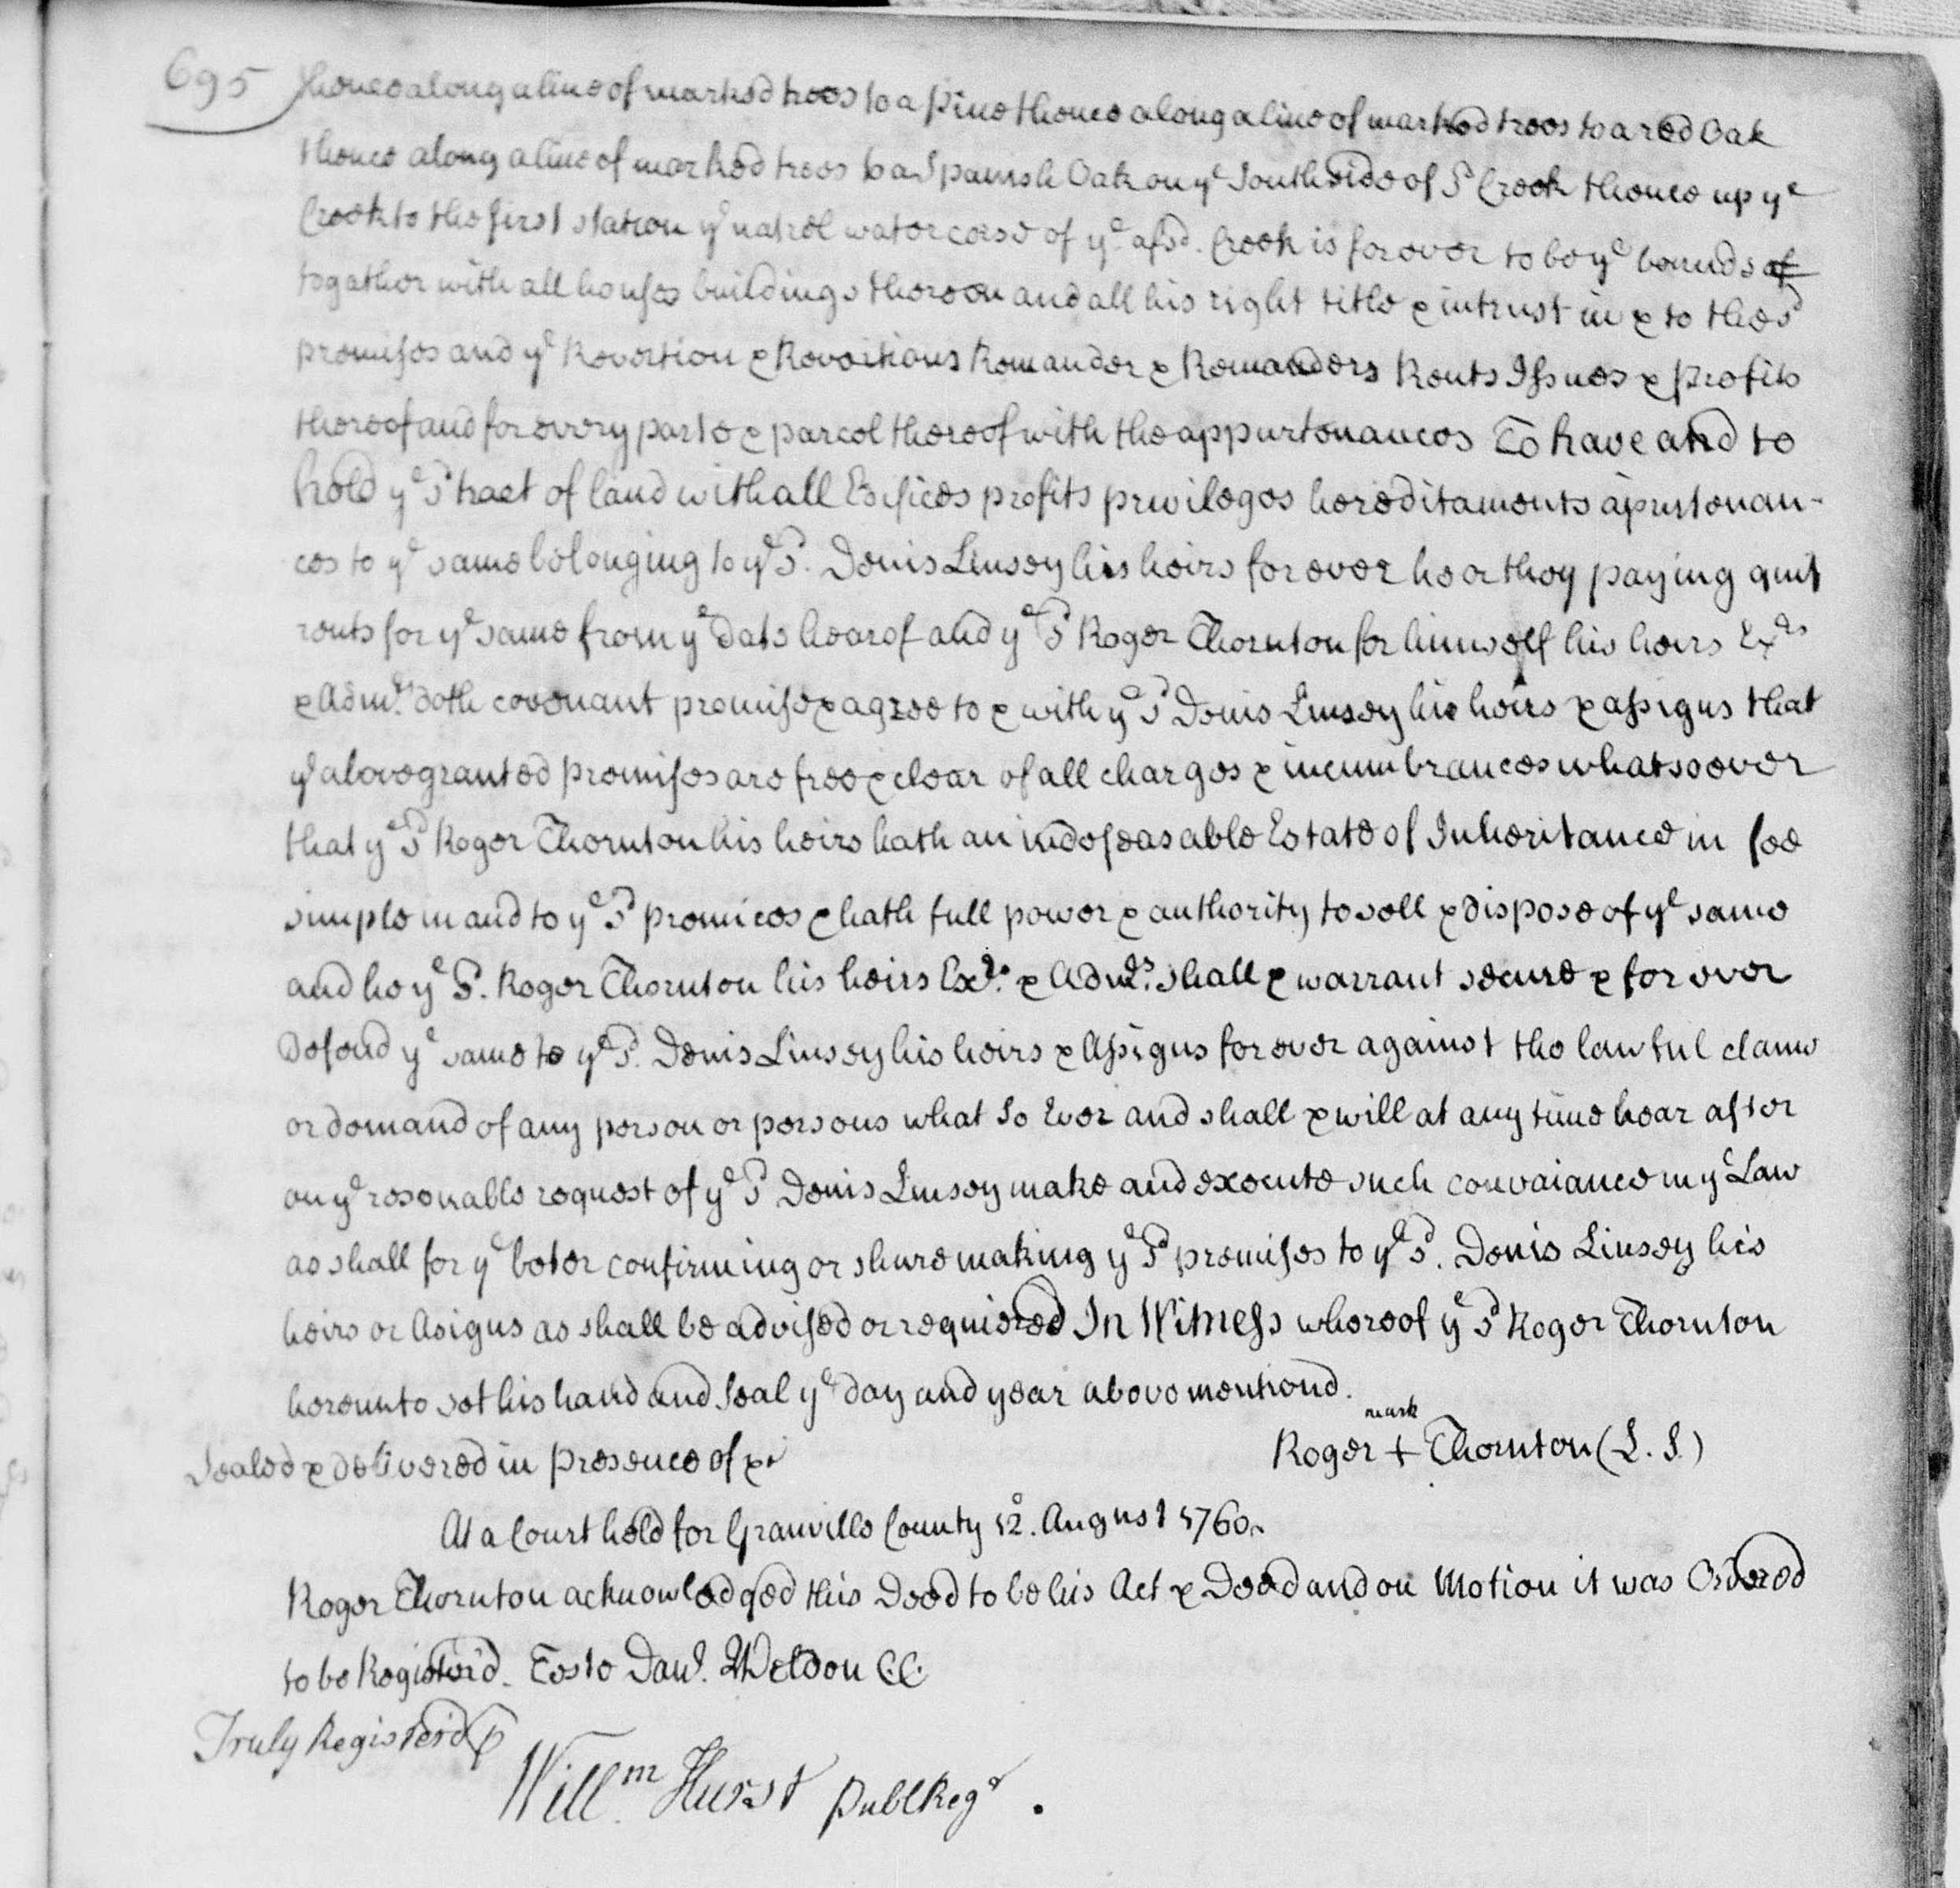 695 thence along a line of marked trees to a pine thence along a line of marked trees to a red Oak
thence along a line of marked trees to a Spanish Oak on ye South side of sd Creek thence up ye
Creek to the first station ye natrel water corse of ye afsd. Creek is for ever to be ye bounds of
together with all houses buildings thereon and all his right title & intrust in & to the sd
premises and ye Revertion & Revertions Remander & Remanders Rents Issues & profits
thereof and for every parte & parcel thereof with the appurtenances To have and to
hold ye sd tract of land with all Edifices profits privileges hereditaments apurtenan-
ces to ye same belonging to ye sd. Denis Linsey his heirs for ever he or they paying quit
rents for ye same from ye date hearof and ye sd Roger Thornton for himself his heirs Exrs
& Admrs. doth covenant promise & agree to & with ye sd Denis Linsey his heirs & assigns that
ye above granted premises are free & clear of all charges & incumbrances whatsoever
that ye sd Roger Thornton his heirs hath an indefeasable Estate of Inheritance in fee
simple in and to ye sd premices & hath full power & authority to sell & dispose of ye same
and he ye sd. Roger Thornton his heirs Exrs. & Admrs. shall & warrant secure & for ever
Defend ye same to ye sd. Denis Linsey his heirs & Assigns for ever against the lawful clame
or demand of any person or persons what So Ever and shall & will at any time hear after
on ye resonable request of ye sd Denis Linsey make and execute such convaiance in ye Law
as shall for ye beter confirming or shure making ye sd premises to ye sd. Denis Linsey his
heirs or Asigns as shall be advised or requiered In Witness whereof ye sd Roger Thornton
hereunto set his hand and Seal ye day and year above mentiond.
mark
Roger + Thornton (L. S.)
Sealed & delivered in presence of
At a Court held for Granville County 12o. August 1760
Roger Thornton acknowledged this Deed to be his Act & Deed and on Motion it was Ordered
to be Registerd. Teste Danl. Weldon CC
Truly Registerd p
Willm. Hurst Publ Regr.